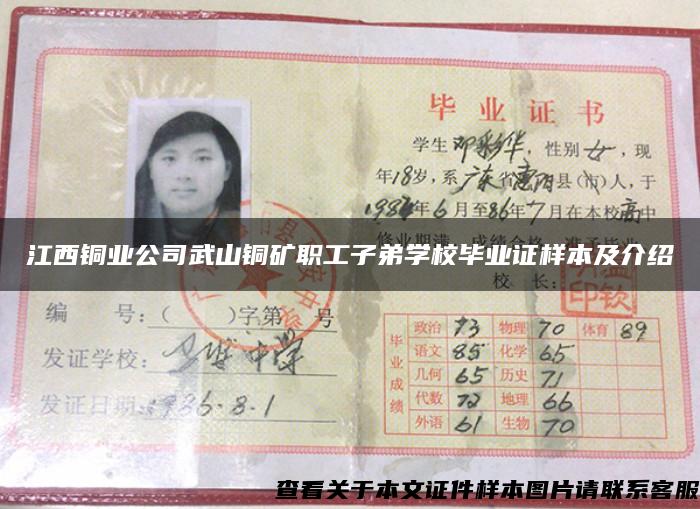 毕业证书
学生邓彩华，性别女，现
年18岁，系广东省惠阳县(市)人，于
1984年6月至86年7月在本校高中
江西铜业公司武山铜矿职工子弟学校毕业证样本及介绍
校 长：
编 号：（ ）字第 号
发证学校： 中学
发证日期：1986.8.1
毕业成绩
政治 73 物理 70 体育 89
语文 85 化学 65
几何 65 历史 71
代数 72 地理 66
外语 61 生物 70
查看关于本文证件样本图片请联系客服